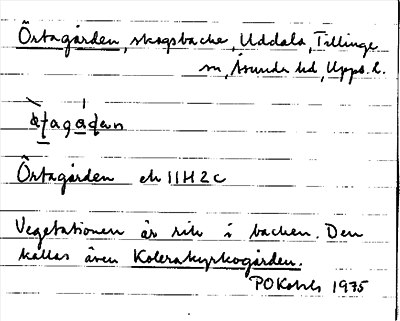 Örtagården, skogsbacke, Uddala, Tillinge
sn, Åsunda hd, Upps. l.
Örtagården ek 11H2c
Vegetationen är rik i backen. Den
kallas även Kolerakyrkogården.
1975